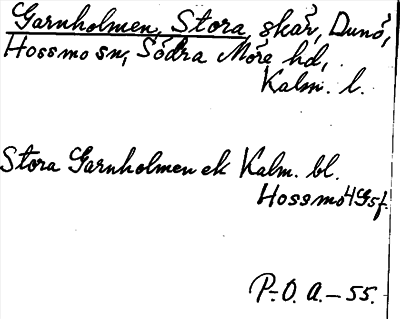 Garnholmen, Stora, skär, Dunö,
Hossmo sn, Södra Möre hd,
Kalm. l.
Stora Garnholmen ek Kalm. bl.
Hossmo 4G5f.
P.-O. A. - 55.